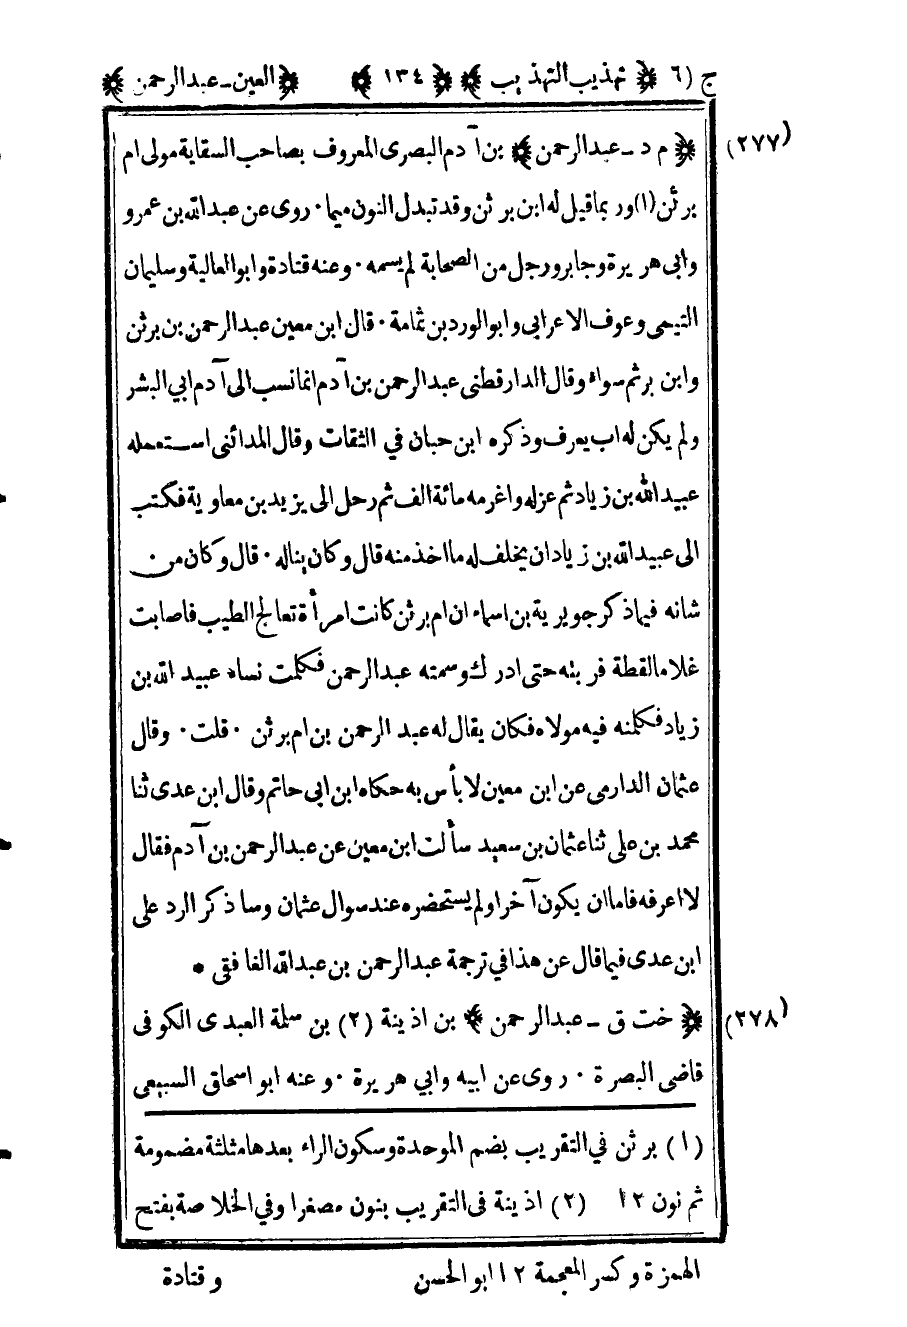 ج (٦) ﴿ تهذيب التهذيب ﴾ ﴿ ١٣٤ ﴾ ﴿ العين - عبدالرحمن ﴾
(٢٧٧) ﴿ م د - عبدالرحمن ﴾ بن آدم البصرى المعروف بصاحب السقاية مولى ام
برثن (١) وربما قيل له ابن برثن وقد تبدل النون ميما٠ روى عن عبدالله بن عمرو
وابى هريرة وجابر ورجل من الصحابة لم يسمه٠ وعنه قتادة وابو العالية وسليمان
التيمى وعوف الاعرابى وابو الورد بن ثمامة٠ قال ابن معين عبدالرحمن بن برثن
وابن برثم سواء وقال الدارقطنى عبدالرحمن بن آدم انما نسب الى آدم ابي البشر
ولم يكن له اب يعرف وذكره ابن حبان في الثقات وقال المدائنى استعمله
عبيدالله بن زياد ثم عزله واغرمه مائة الف ثم رحل الى يزيد بن معاوية فكتب
الى عبيدالله بن زياد ان يخلف له ما اخذ منه قال وكان يناله٠ قال وكان من
شانه فيما ذكر جويرية بن اسماء ان ام برثن كانت امرأة تعالج الطيب فاصابت
غلاما لقطة فربته حتى ادرك وسمته عبدالرحمن فكلمت نساء عبيد الله بن
زياد فكلمنه فيه مولاه فكان يقال له عبد الرحمن بن ام برثن ٠ قلت ٠ وقال
عثمان الدارمى عن ابن معين لا بأس به حكاه ابن ابي حاتم وقال ابن عدى ثنا
محمد بن على ثنا عثمان بن سعيد سألت ابن معين عن عبدالرحمن بن آدم فقال
لا اعرفه فاما ان يكون آخر او لم يستحضره عند سوال عثمان وساذكر الرد على
ابن عدى فيما قال عن هذا في ترجمة عبدالرحمن بن عبدالله الغافقى *
(٢٧٨) ﴿ خت ق - عبدالرحمن ﴾ بن اذينة (٢) بن سلمة العبدى الكوفى
قاضى البصرة ٠ روى عن ابيه وابي هريرة ٠ وعنه ابو اسحاق السبيعى
(١) برثن في التقريب بضم الموحدة وسكون الراء بعدها مثلثة مضمومة
ثم نون ١٢ (٢) اذينة فى التقريب بنون مصغرا وفي الخلاصة بفتح
الهمزة وكسر المعجمة ١٢ ابو الحسن
وقتادة